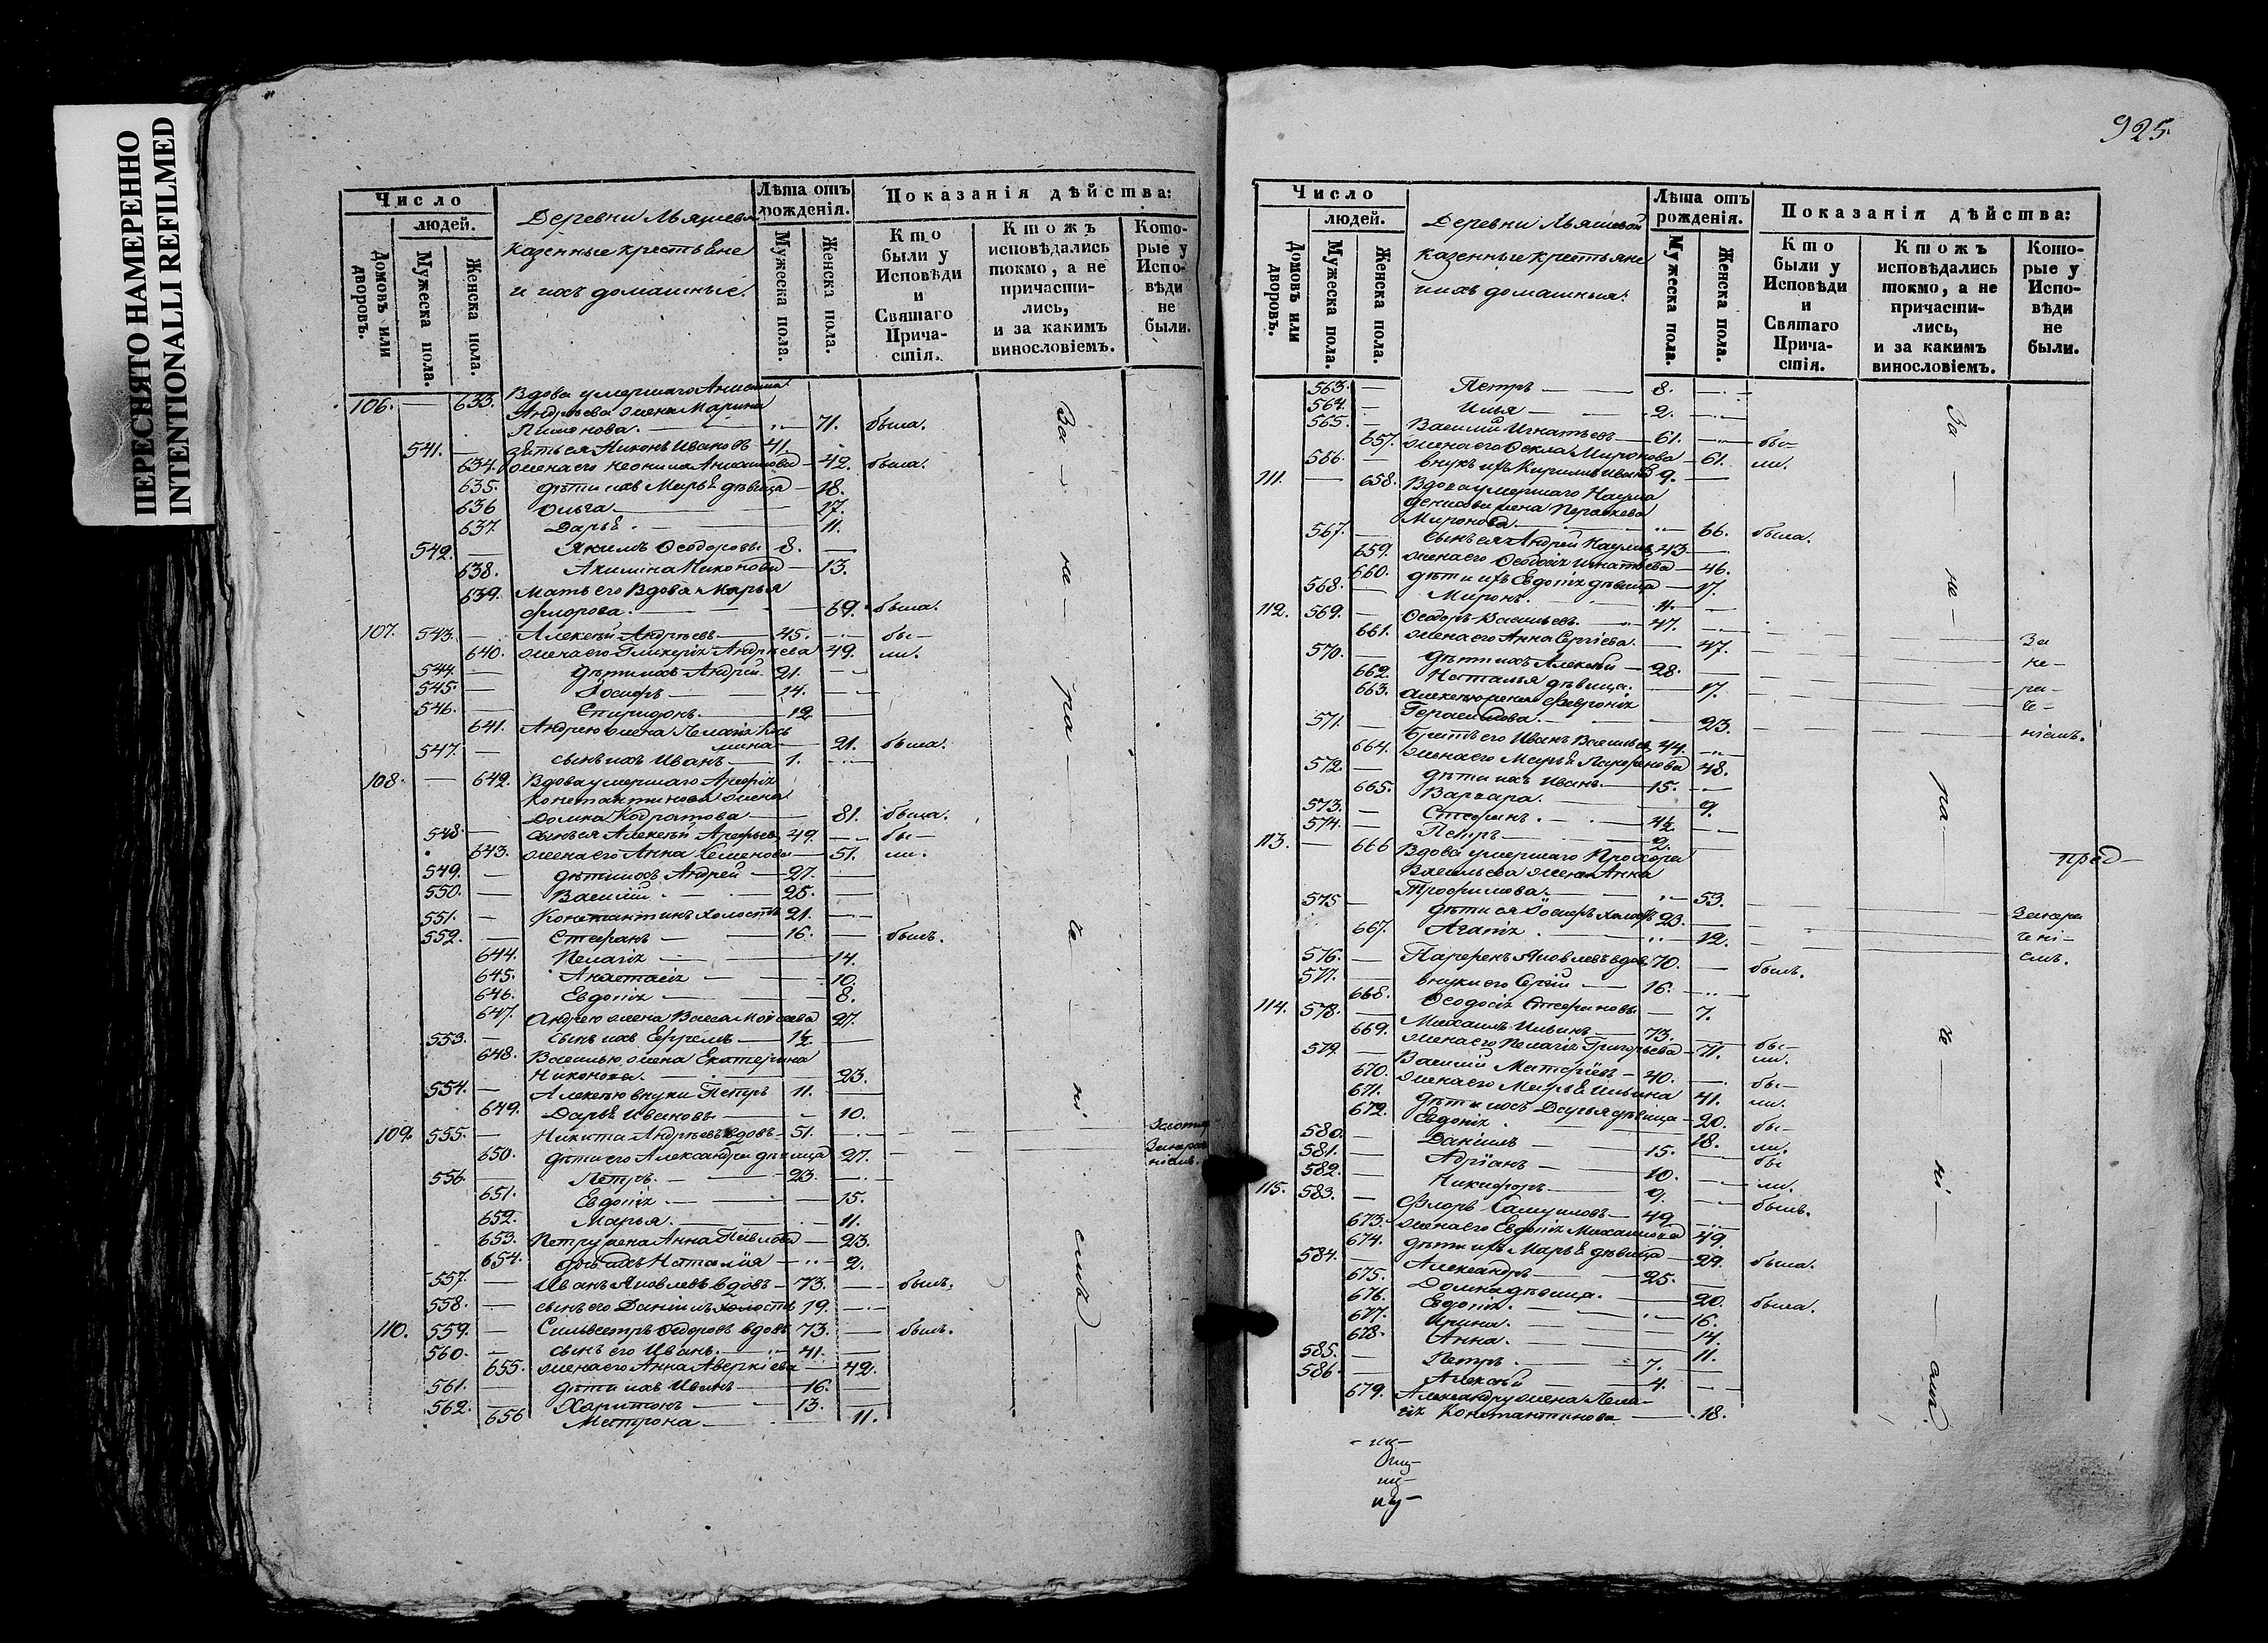 ПЕРЕСНЯТО НАМЕРЕННО
INTENTIONALLI REFILMED
Число
людей.
Домовъ или дворовъ.
Мужеска пола.
Женска пола.
Деревни
казенные крестьяне
и ихъ домашные.
Лѣта отъ рожденія.
Мужеска пола.
Женска пола.
Показанія дѣйства:
Кто были у Исповѣди и Святаго Причастія.
Ктожъ исповѣдались токмо, а не причастились, и за какимъ винословіемъ.
Которые у Исповѣди не были.
106. — 633. Вдова умершаго
Андреева жена Марина
Пимонова. — 71. была.
541. — зять ея Никонъ Ивановъ 41.
634. жена его Неонила — 42. была.
635. дѣти ихъ Марья дѣвица — 18.
636 Ольга — 17.
637. Дарья — 11.
542. — Якимъ Ѳеодоровъ 8. —
638. Акилина Никонова — 13.
639. Мать его Вдова Марья
Флорова. — 69. была.
107. 543. — Алексѣй Андреевъ — 45. — бы-
640. жена его Гликерія Андреева 49. ли.
544. — дѣти ихъ Андрей. 21. —
545. — Іосифъ — 14. —
546. — Спиридонъ. — 12. —
641. Андрею жена Пелагія Кось
мина — 21. была.
547. — сынъ ихъ Иванъ — 1.
108. — 642. Вдова умершаго Арефія
Константинова жена
Домна Кодратова — 81. была.
548. — сынъ ея Алексѣй Арефьевъ 49. — бы-
643. жена его Анна Семенова — 51. ли.
549. — дѣти ихъ Андрей — 27. —
550. — Василій — 25. —
551. — Константинъ холостъ 21. —
552. — Стефанъ — 16. — былъ.
644. Пелагія — 14.
645. Анастасія — 10.
646. Евдокія — 8.
647. Андрею жена Васса Моисеева 27.
553. — сынъ ихъ Ефремъ — 1½. —
648. Василью жена Екатерина
Никонова. — 23.
554. — Алексѣю внуки Петръ 11. —
649. Дарья Иванова — 10.
109. 555. — Никита Андреевъ вдовъ — 51. —
650. дѣти его Александра дѣвица 27. —
556 — Петръ. — 23. —
651. Евдокія — 15.
652. Марья. — 11.
653. Петру жена Анна Павлова — 23.
654. дочь ихъ Наталія — 2.
557. — Иванъ Яковлевъ вдовъ — 73. — былъ.
558. — сынъ его Даніилъ холостъ 19. —
110. 559. — Сильвестръ Ѳедоровъ вдовъ 73. — былъ.
560. — сынъ его Иванъ. — 41. —
655. жена его Анна Аверкіева — 42.
561. — дѣти ихъ Иванъ — 16. —
562. — Харитонъ — 13. —
656 Матрона — 11.
За — не — ра — че — ні — емъ —
925.
Число
людей.
Домовъ или дворовъ.
Мужеска пола.
Женска пола.
Деревни
казенные крестьяне
и ихъ домашныя.
Лѣта отъ рожденія.
Мужеска пола.
Женска пола.
Показанія дѣйства:
Кто были у Исповѣди и Святаго Причастія.
Ктожъ исповѣдались токмо, а не причастились, и за какимъ винословіемъ.
Которые у Исповѣди не были.
563. — Петръ — 8. —
564. — Илья — 2. —
565. — Василій Игнатьевъ — 61. — бы-
657. жена его Ѳекла Миронова — 61. ли.
566. — внукъ ихъ Кирилъ Ивановъ 9. —
111. — 658. Вдова умершаго Наума
жена Параскева
Миронова — 66. была.
567. — сынъ ея Андрей Наумовъ 43. —
659. жена его Ѳеодосія Игнатьева — 46.
660. дѣти ихъ Евдокія дѣвица — 17.
568. — Миронъ. — 11. —
112. 569. — Ѳеодоръ Васильевъ — 47. —
661. жена его Анна Сергіева. — 47.
570. — дѣти ихъ Алексѣй — 28. —
662. Наталья дѣвица. — 17.
663. Алексѣю жена Февронія
Герасимова. — 23.
571. — Братъ его Иванъ Васильевъ 44. —
664. жена его Марья Парфенова 48.
572. — дѣти ихъ Иванъ. — 15. —
665. Варвара. — 9.
573. — Стефанъ. — 4½. —
574. — Петръ — 2. —
За не-ра-че-ніемъ.
113. — 666 Вдова умершаго Прохора
Васильева жена Анна
Трофимова. — 53.
575 — дѣти ея Іосифъ холостъ 23. —
667. Агапія — 12.
За нера
чені-
емъ.
576. — Парфенъ Яковлевъ вдовъ 70. — былъ.
577. — внуки его Сергій — 16. —
668. Ѳеодосія Стефанова — 7.
114. 578. — Михаилъ Ильинъ — 73. — бы-
669. жена его Пелагія Григорьева — 71. ли.
579. — Василій — 40. — бы-
670. жена его Марья Ильина 41. ли.
671. дѣти ихъ Дарья дѣвица — 20. бы-
672. Евдокія — 18. ли.
580. — Даніилъ — 15. — бы
581. — Адріанъ — 10. — ли.
582. — Никифоръ — 9. — былъ.
115. 583. — Флоръ Самуиловъ — 49. —
673. жена его Евдокія Михайлова 49.
674. дѣти ихъ Марья дѣвица — 29. была.
584. — Александръ — 25. —
675. Домна дѣвица. — 20. была.
676. Евдокія. — 16.
677. Ирина. — 14.
678. Анна. — 11.
585. — Петръ. — 7. —
586. — Алексѣй — 4. —
679. Александру жена Пела-
гія Константинова — 18.
За — не — ра — че — ні — емъ.